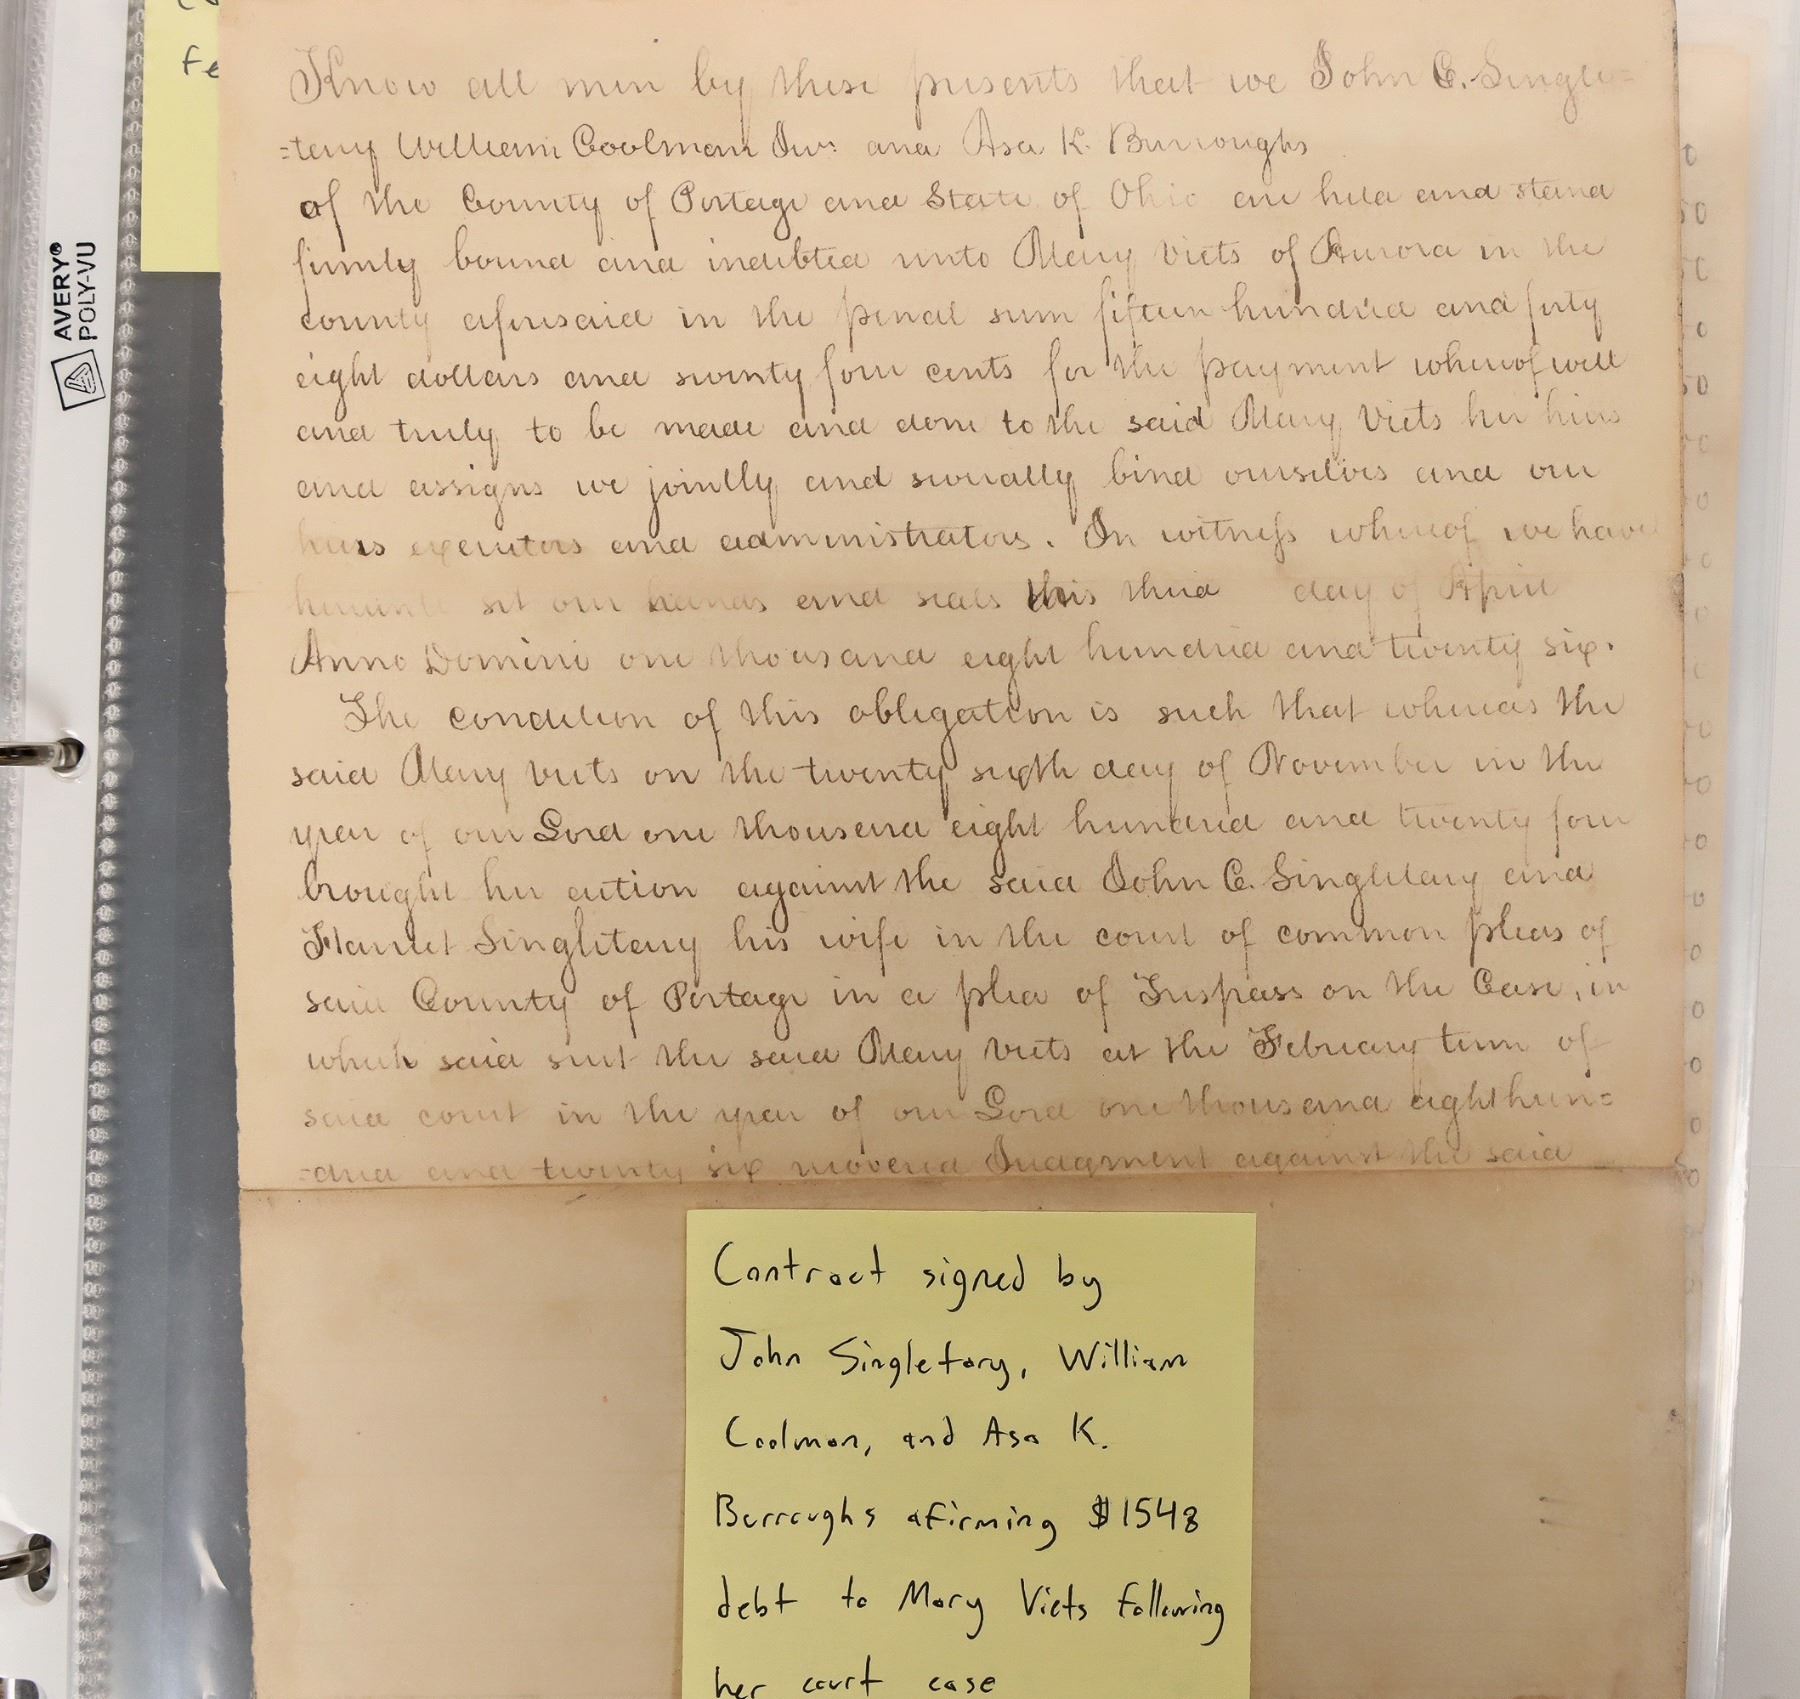 fe
AVERY®
POLY-VU
Know all men by these presents that we John C. Single=
=tery William Coolman Junr and Asa K. Burroughs
of the County of Portage and State of Ohio are held and stand
firmly bound and indebted unto Mary Viets of Aurora in the
county aforesaid in the penal sum fifteen hundred and forty
eight dollars and seventy four cents for the payment whereof well
and truly to be made and done to the said Mary Viets her heirs
and assigns we jointly and severally bind ourselves and our
heirs executors and administrators. In witness whereof we have
hereunto set our hands and seals this third day of April
Anno Domini one thousand eight hundred and twenty six.
The condition of this obligation is such that whereas the
said Mary Viets on the twenty sixth day of November in the
year of our Lord one thousand eight hundred and twenty four
brought her action against the said John C. Singletary and
Harriet Singletery his wife in the court of common pleas of
said County of Portage in a plea of Trespass on the Case, in
which said suit the said Mary Viets at the February term of
said court in the year of our Lord one thousand eight hun=
=dred and twenty six recovered Judgment against the said
Contract signed by
John Singletary, William
Coolman, and Asa K.
Burroughs afirming $1548
debt to Mary Viets following
her court case